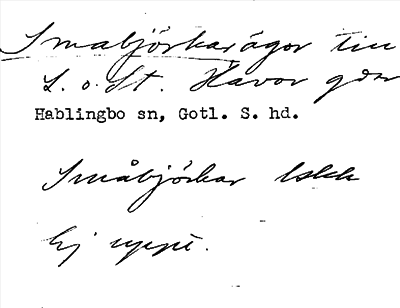 Småbjörkar ägor till
L. o. St. Havor gdr
Hablingbo sn, Gotl. S. hd.
Småbjörkar
Ej uppt.